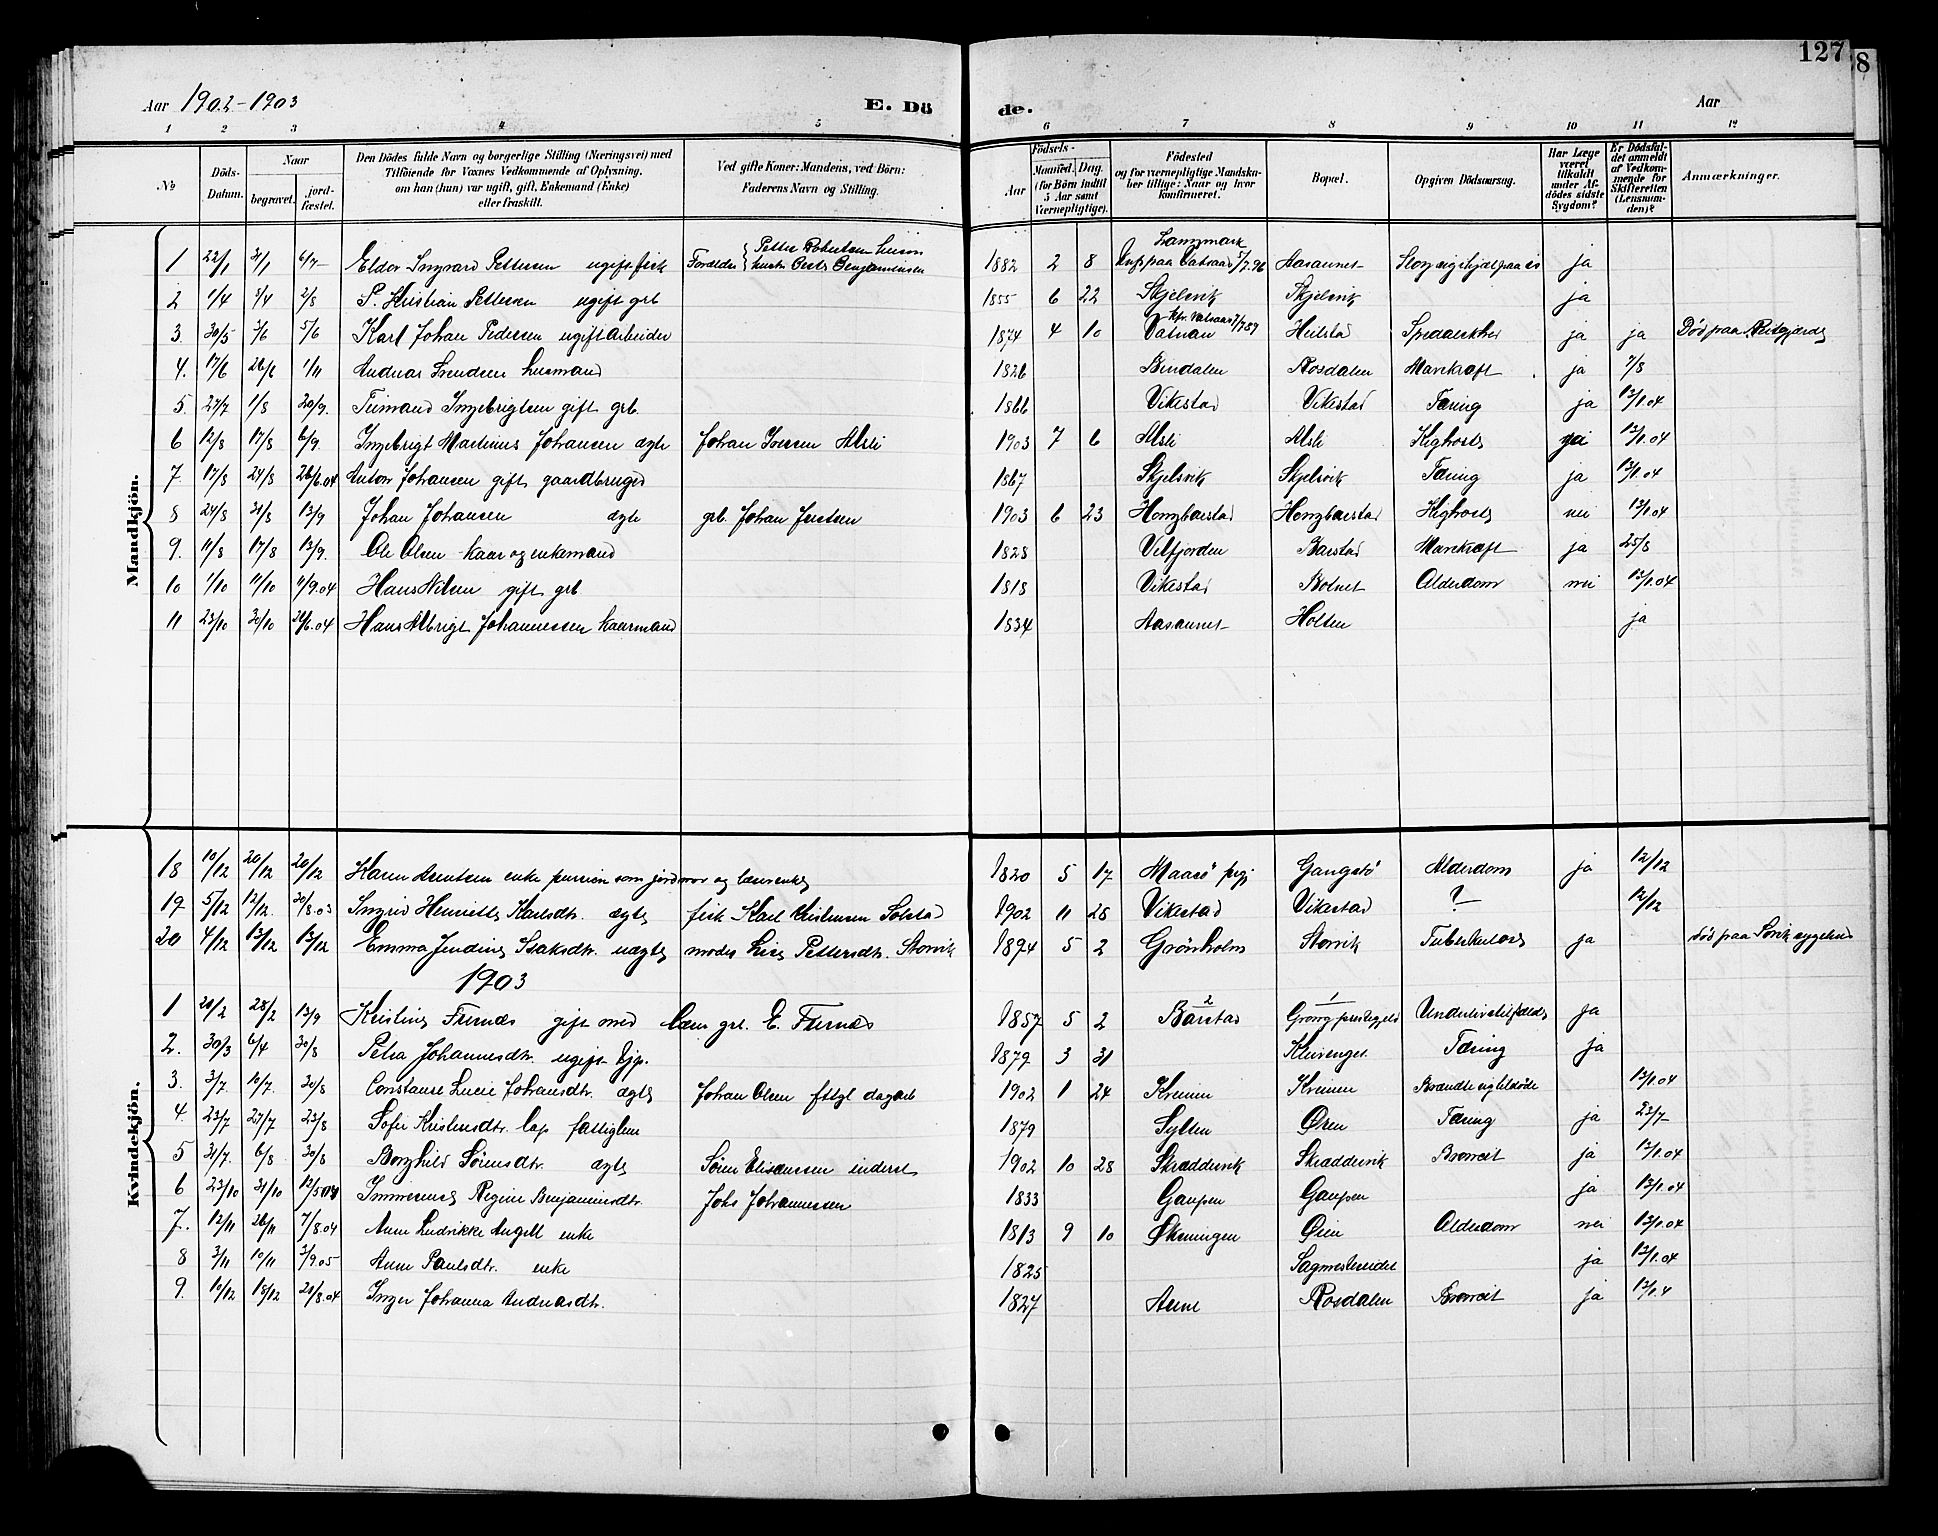 127
8
Aar 1902-1903
E. Dö
de.
Aar
1 2 3 4 5 6 7 8 9 10 11 12
No
Döds-
Datum.
Naar
begravet.
jord-
fæstet.
Den Dödes fulde Navn og borgerlige Stilling (Næringsvei) med
Tilföiende for Voxnes Vedkommende af Oplysning,
om han (hun) var ugift, gift, Enkemand (Enke)
eller fraskilt.
Ved gifte Koner: Mandens, ved Börn:
Faderens Navn og Stilling.
Födsels-
Aar
Maaned. Dag.
(for Börn indtil
5 Aar samt
Værnepligtige).
Födested
og for værnepligtige Mandska-
ber tillige: Naar og hvor
konfirmeret.
Bopæl.
Opgiven Dödsaarsag.
Har Læge
været
tilkaldt
under Af-
dödes sidste
Sygdom?
Er Dödsfal-
det anmeldt
af Vedkom-
mende for
Skifteretten
(Lensman-
den)?
Anmærkninger.
Mandkjön.
1 22/1 31/1 6/7 Eldor Ingvard Pettersen ugift fisk Forældre 1882 2 8 Aasaunet ja
2 1/4 3/4 2/8 P. Kristian Pettersen ugift grb 1855 6 22 Skjelsvik Skjelsvik ja
3. 30/5 3/6 5/6 Karl Johan Pedersen ugift Arbeider 1874 4 10 Vatnan Heilstad Spedalskhed ja ja Död paa Reitgjærdet
4. 17/6 26/6 1/11 Andreas Svendsen husmand 1826 Bindalen Rosdalen Marekræft ja 7/8
5. 27/7 1/8 20/9. Ingebrigtsen gift grb. 1866 Vikestad Vikestad Tæring ja 13/1.04
6 12/8 17/8 6/9. Ingebrigt Martinus Johansen ægte Johan Iversen Alsli 1903 7 6 Alsli Alsli Kighoste nei 13/1.04
7. 17/8 24/8 26/6.04 Anton Johansen gift gaardbruger 1867 Skjelsvik Skjelsvik Tæring ja 13/1.04
8 24/8 31/8 13/9 Johan Johansen ægte grb. Johan 1903 6 23 Hongbarstad Hongbarstad Kighoste nei 13/1.04
9. 11/8 17/8 13/9. Ole Olsen kaar og enkemand 1828 Velfjorden Barstad Marekræft ja 25/8
10 1/10 11/10 11/9.04 Hans Nilsen gift grb 1818 Vikestad Botnet Alderdom nei 13/1.04
11 23/10 30/10 26/6.04 Hans Albrigt Johannessen kaarmand 1834 Aasaunet Holten ja
Kvindekjön.
18 10/12 20/12 20/12 Karen Arentsen enke pension som jordmor og lærerenke 1820 5 17 Maasö Gangstö Alderdom ja 12/12
19 5/12 12/12. 30/8.03 Ingrid Henriette Karlsdtr. ægte fisk Karl Kristensen Solstad 1902 11 28 Vikestad Vikestad ? 12/12
20 4/12 13/12 13/12 Emma Jendine Isaksdtr. uægte moder Lise Pettersdtr. Storvik 1894 5 2 Grönholm Storvik Tuberkulose ja död paa
1903
1 20/2 28/2 13/9 Kristine Furnes gift med Lær grb. E. Furnes 1857 5 2 Barstad Grong præstegjeld Underlivstilfælde ja
2. 30/3 6/4 30/8 Petra Johannesdtr. ugift tjp. 1879 3 31 Tæring ja
3. 3/7. 10/7. 30/8 Constanse Lucie Johansdtr. ægte Johan Olsen dagarb 1902 1 24 Kreinen Kreinen Brændte sig tildöde 13/1.04
4. 23/7 27/7 23/8 Sofie Kristensdtr. lap fattiglem 1879 Sylten Öien Tæring ja 23/7
5 31/7. 6/8 30/8 Borghild Sörensdtr. ægte Sören Elisæussen inderst 1902 10 28 Skraddervik Skraddervik Bronkit ja 13/1.04
6 23/10 31/10 Regine Benjaminsdtr. Johs Johannessen 1833 Gaupen Gaupen ja 13/1.04
7. 12/11 26/11 7/8.04 Anne Hendrikke Angell enke 1813 9 10 Öien Alderdom nei 13/1.04
8 3/11 10/11 3/9.05 Anne Paulsdtr. enke 1825 Sagmestereidet ja 13/1.04
9. 10/12 18/12 20/8.04 Inger Johanna Andreasdtr. 1827 Aune Rosdalen Bronkit ja 13/1.4